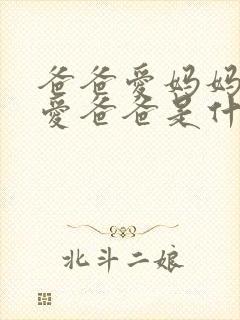 爸爸爱妈妈
爱爸爸是什
北斗二娘